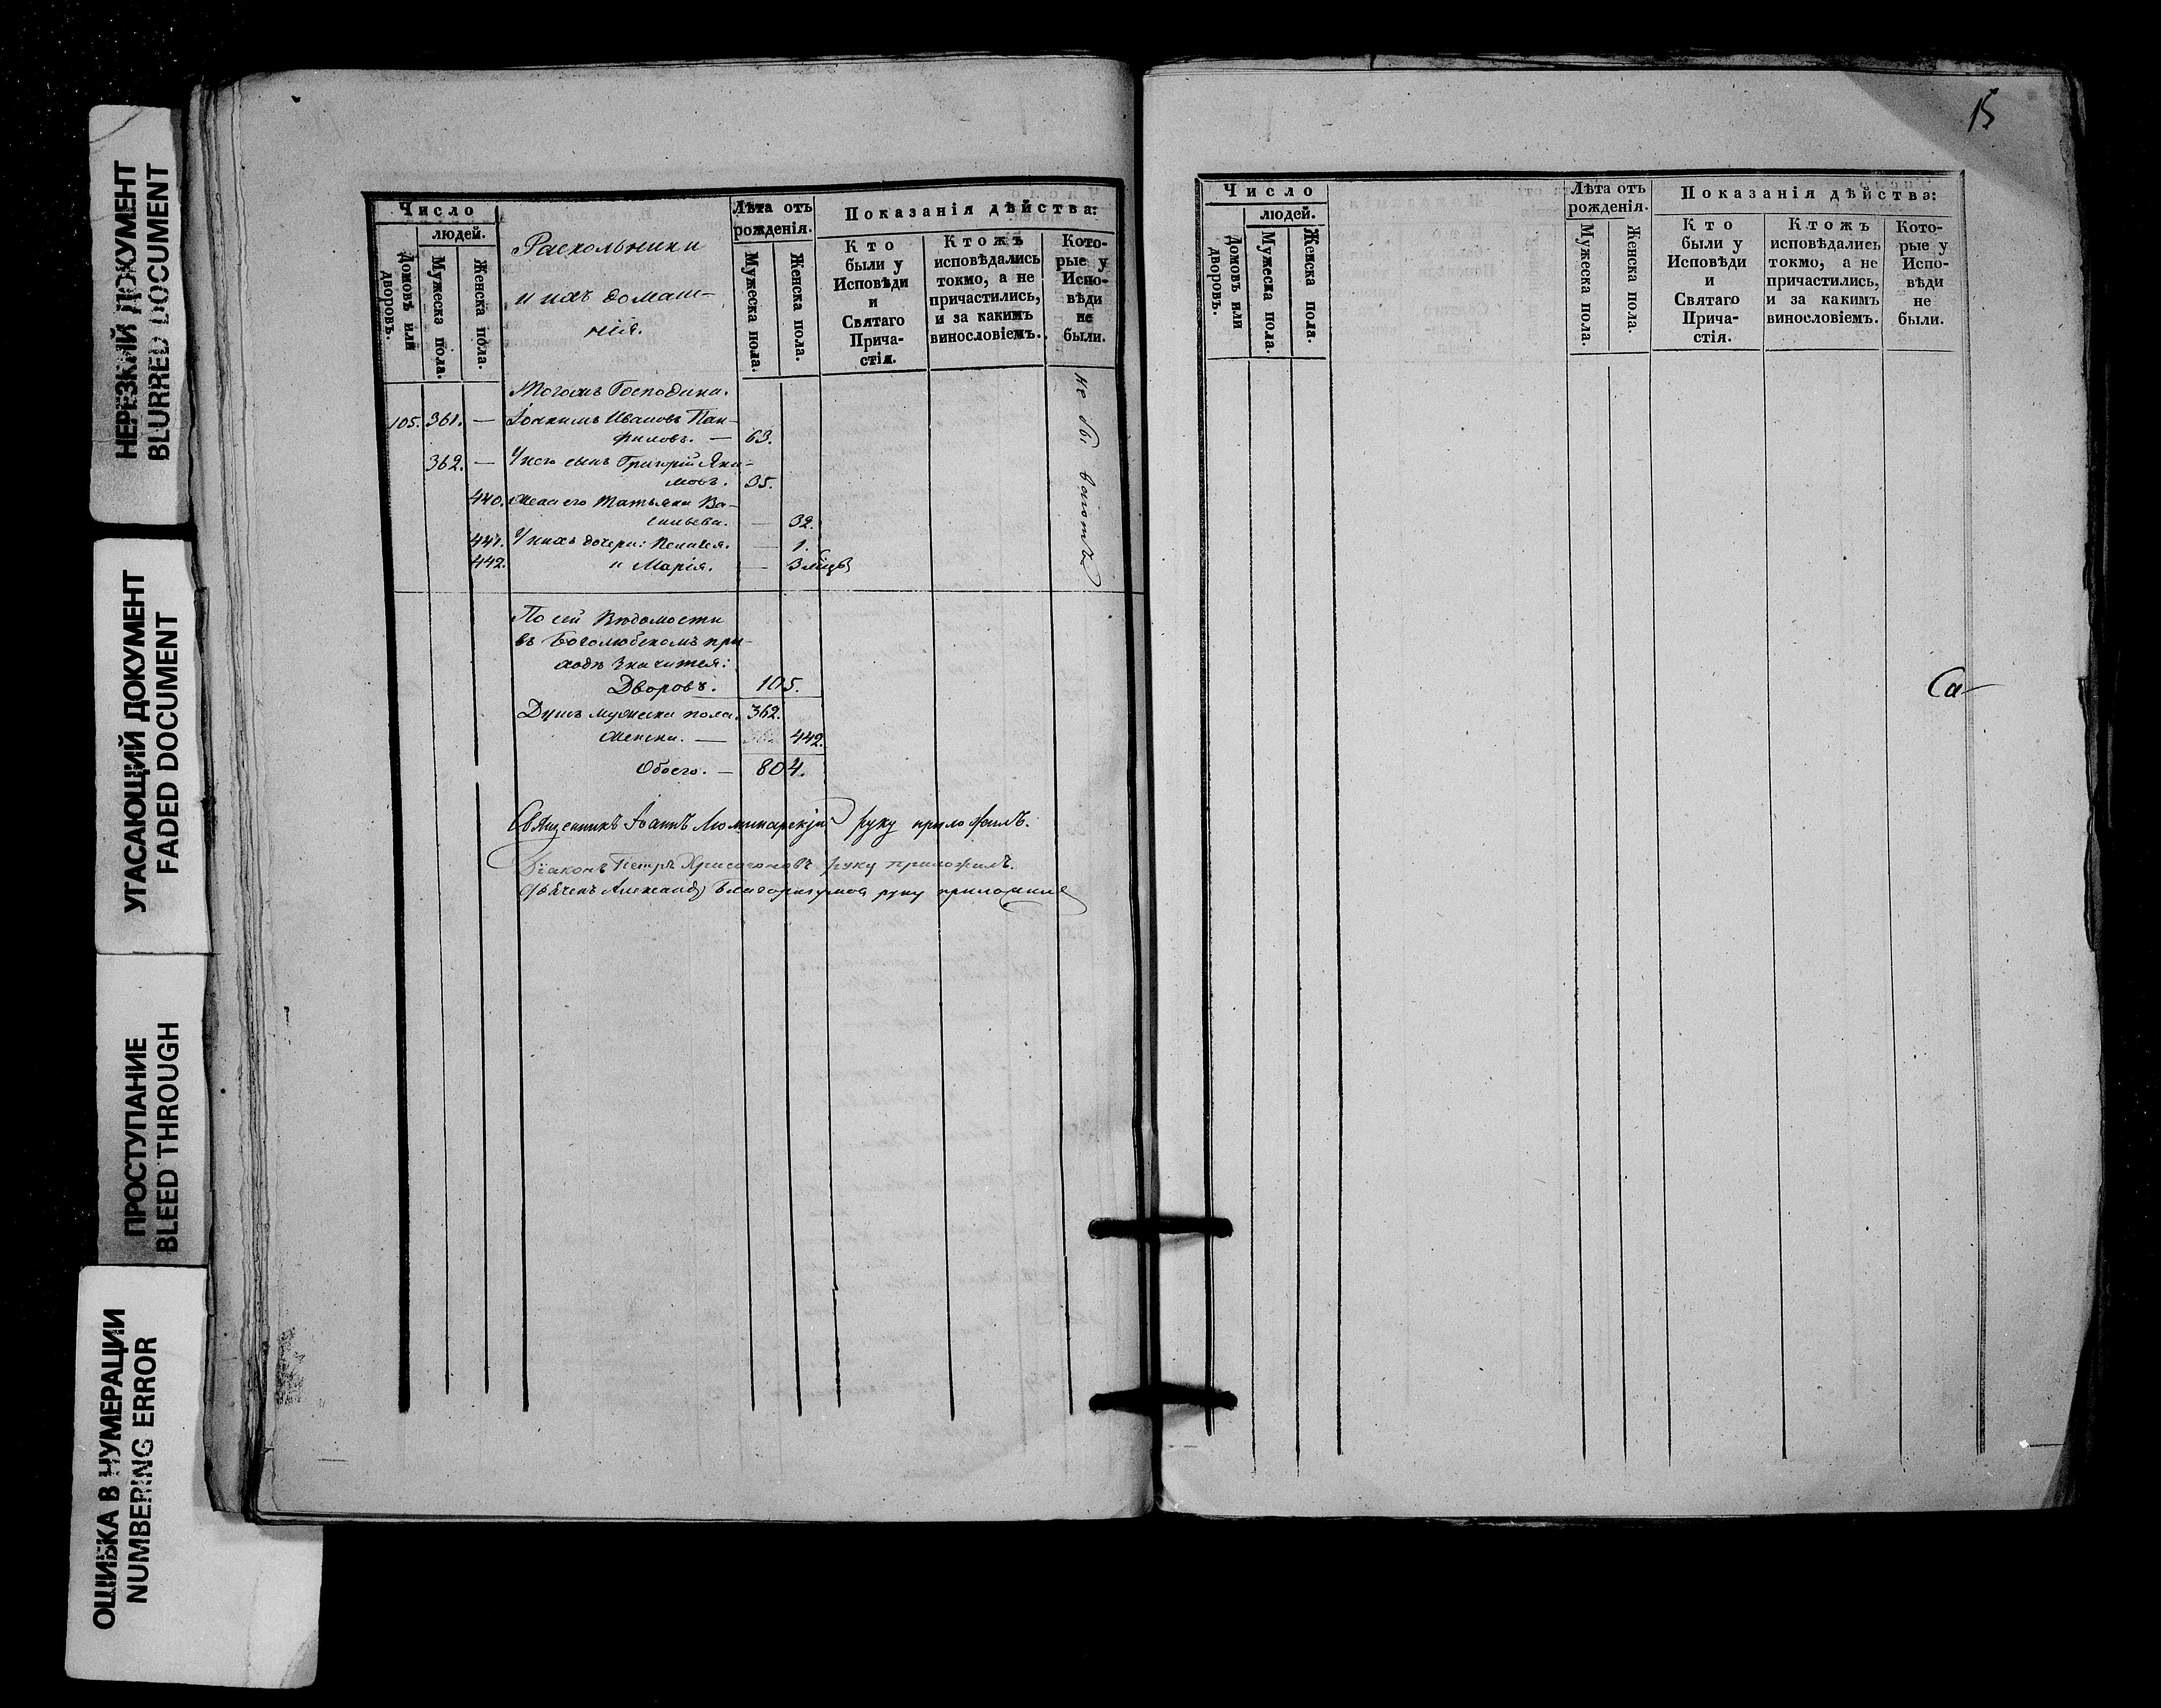 НЕРЕЗКИЙ ДОКУМЕНТ
BLURRED DOCUMENT
УГАСАЮЩИЙ ДОКУМЕНТ
FADED DOCUMENT
ПРОСТУПАНИЕ
BLEED THROUGH
ОШИБКА В НУМЕРАЦИИ
NUMBERING ERROR
Число
людей.
Домовъ или дворовъ.
Мужеска пола.
Женска пола.
Раскольники
и ихъ домаш-
нія.
Лѣта отъ
рожденія.
Мужеска пола.
Женска пола.
Показанія дѣйства:
Кто
были у
Исповѣди
и
Святаго
Прича-
стія.
Ктожъ
исповѣдались
токмо, а не
причастились,
и за какимъ
винословіемъ.
Кото-
рые у
Испо-
вѣди
не
были.
Тогожъ Господина.
105. 361. — Іоакимъ Ивановъ Пан-
филовъ. — 63.
362. — У него сынъ Григорій Яки-
мовъ. 35.
440. Жена его Татьяна Ва-
сильева. — 32.
441. У нихъ дочери: Пелагея. — 1.
442. и Марія. — 3
не бываютъ
По сей Вѣдомости
въ Боголюбскомъ при-
ходѣ значится:
Дворовъ. 105.
Душъ мужеска пола. 362.
Женска. — 442.
Обоего. — 804.
Священникъ Іоаннъ Люминарскій руку приложилъ.
Діаконъ Петръ Хрисогоновъ руку приложилъ.
Александръ Благоразумовъ руку приложилъ
15
Число
людей.
Домовъ или дворовъ.
Мужеска пола.
Женска пола.
Лѣта отъ
рожденія.
Мужеска пола.
Женска пола.
Показанія дѣйства:
Кто
были у
Исповѣди
и
Святаго
Прича-
стія.
Ктожъ
исповѣдались
токмо, а не
причастились,
и за какимъ
винословіемъ.
Кото-
рые у
Испо-
вѣди
не
были.
Са-